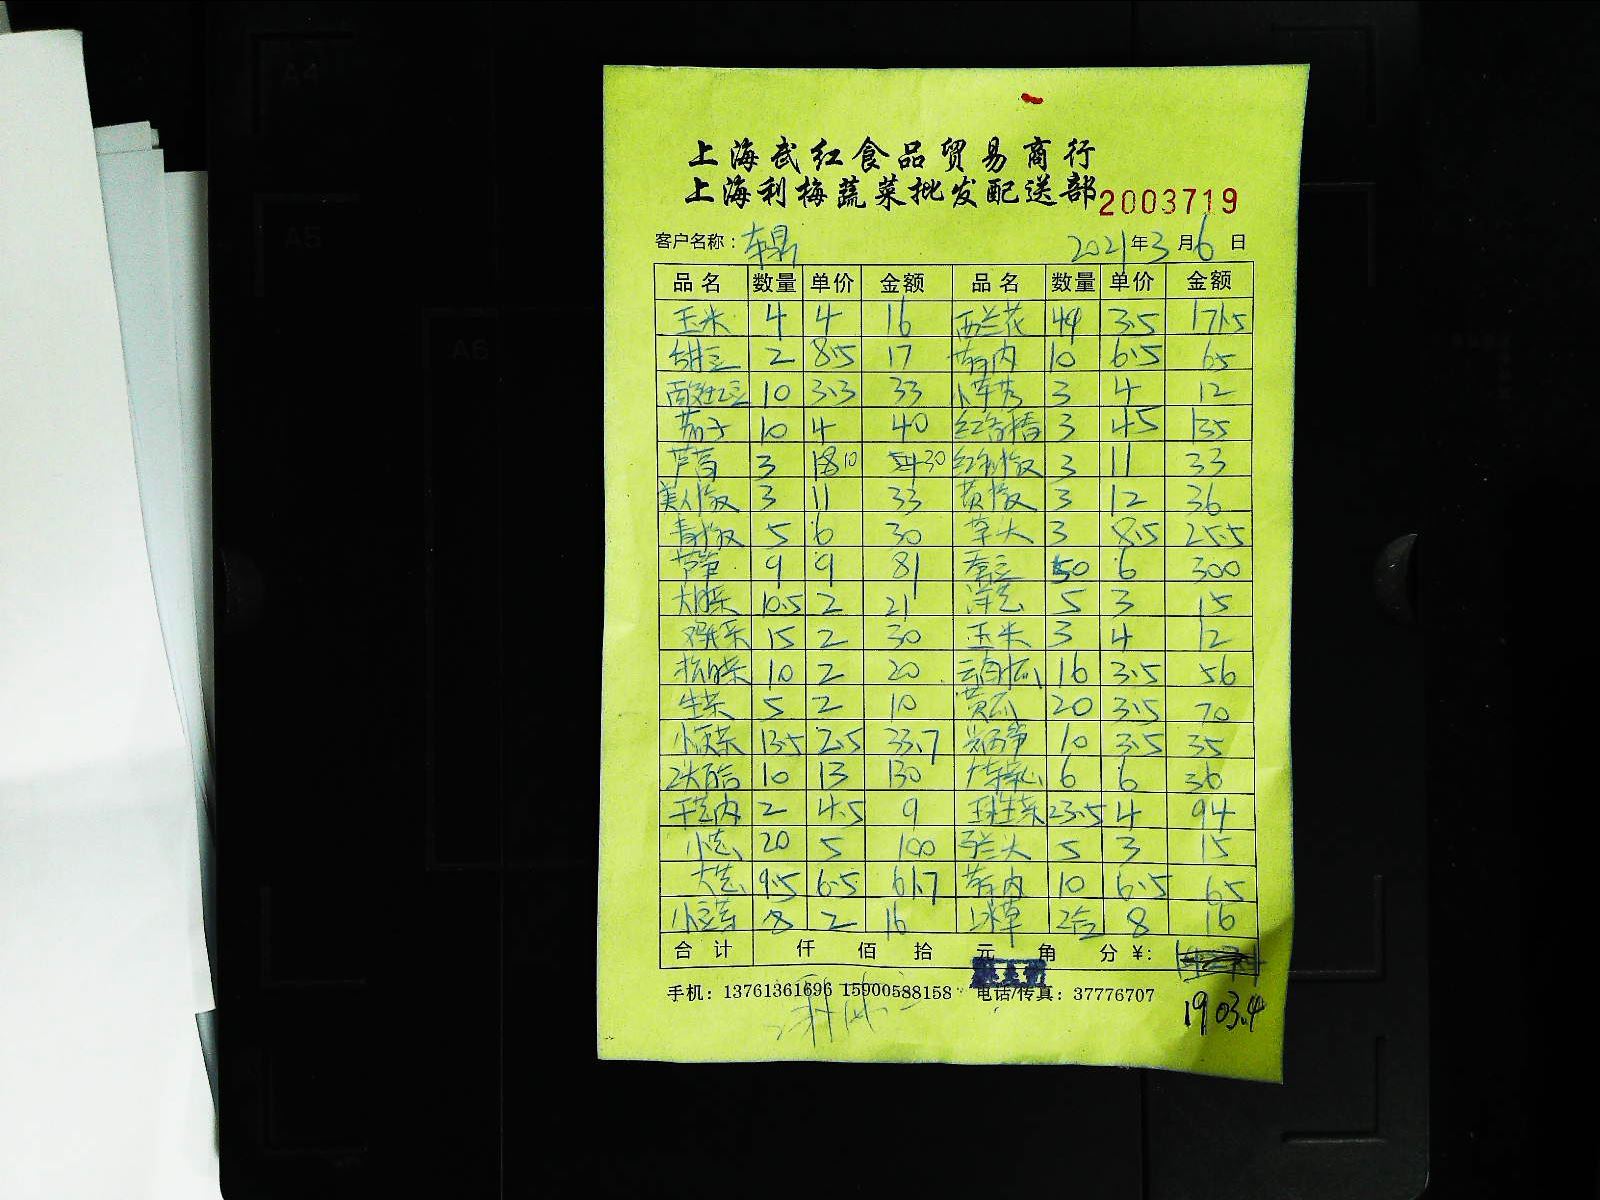 A4
A5
A6
上海武红食品贸易商行
上海利梅蔬菜批发配送部 2003719
客户名称: 2021年3月6日
品名 数量 单价 金额 品名 数量 单价 金额
玉米 4 4 16 西兰花 49 3.5 171.5
2 8.5 17 10 6.5 65
10 3.3 33 3 4 12
茄子 10 4 40 3 45 135
3 18 10 54 30 3 11 33
美人椒 3 11 33 黄椒 3 12 36
青椒 5 6 30 草头 3 8.5 25.5
芦笋 9 9 81 50 6 300
大白菜 10.5 2 21 洋葱 5 3 15
鸡毛菜 15 2 30 玉米 3 4 12
10 2 20 16 3.5 56
生菜 5 2 10 黄瓜 20 3.5 70
13.5 2.5 33.7 10 3.5 35
10 13 130 6 6 36
2 4.5 9 23.5 4 94
小葱 20 5 100 5 3 15
大葱 9.5 6.5 61.7 10 6.5 65
小豆芽 8 2 16 冰草 2合 8 16
合计 仟 佰 拾 元 角 分 ¥:
手机: 13761361696 15900588158 电话/传真: 37776707
1903.4